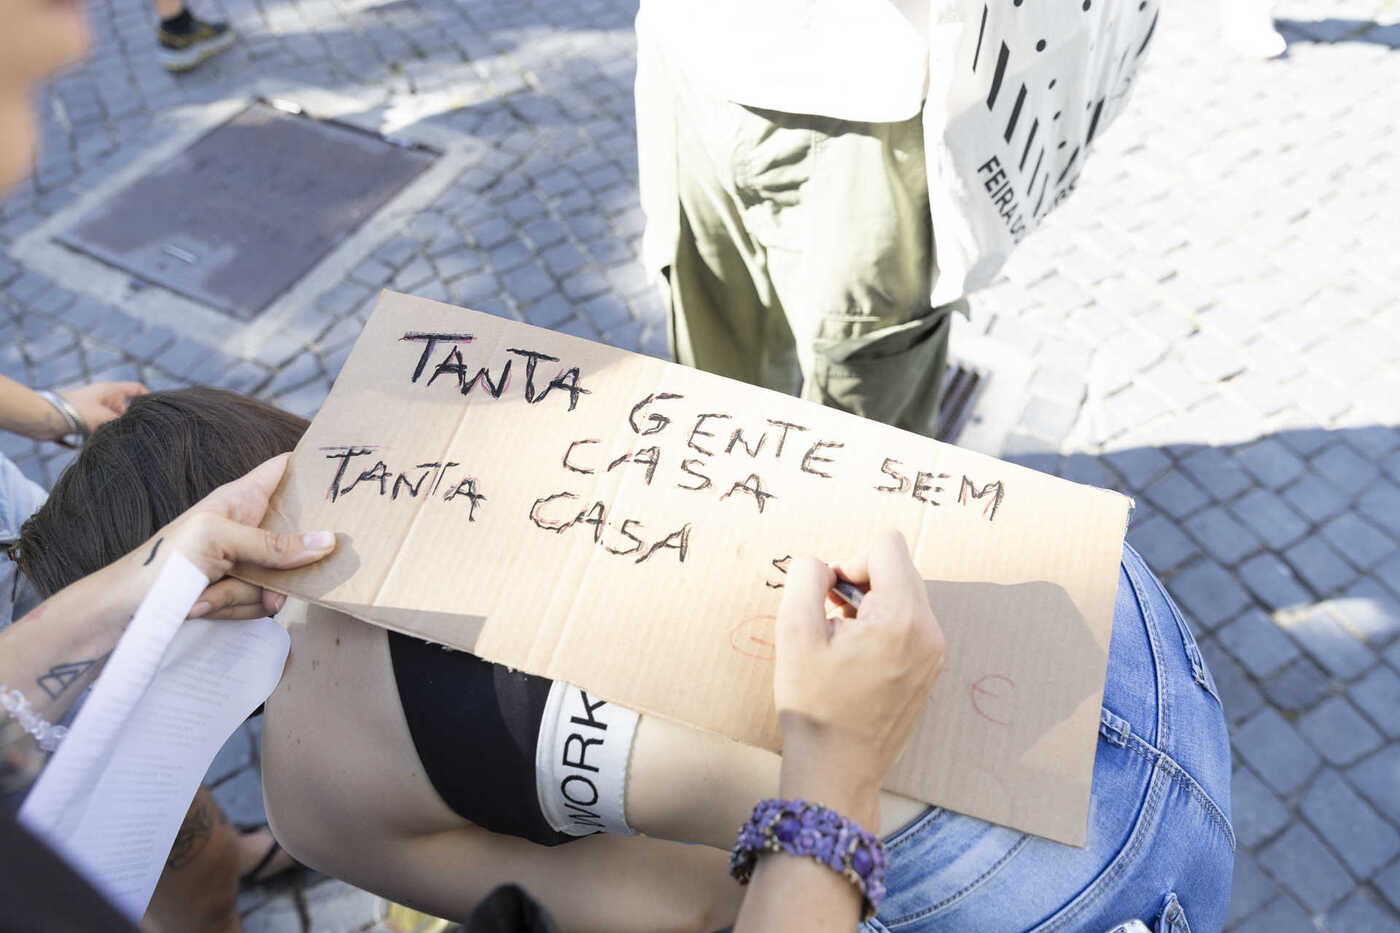 TANTA GENTE SEM
CASA
TANTA CASA S
G
E
WORK
FEIRA